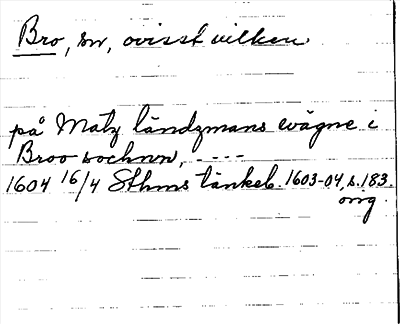 Bro, sn, ovisst vilken
på Matz ländzmans wägne i
Broo sochnn, ----
1604 16/4 Sthms tänkeb. 1603-04, s. 183.
org.